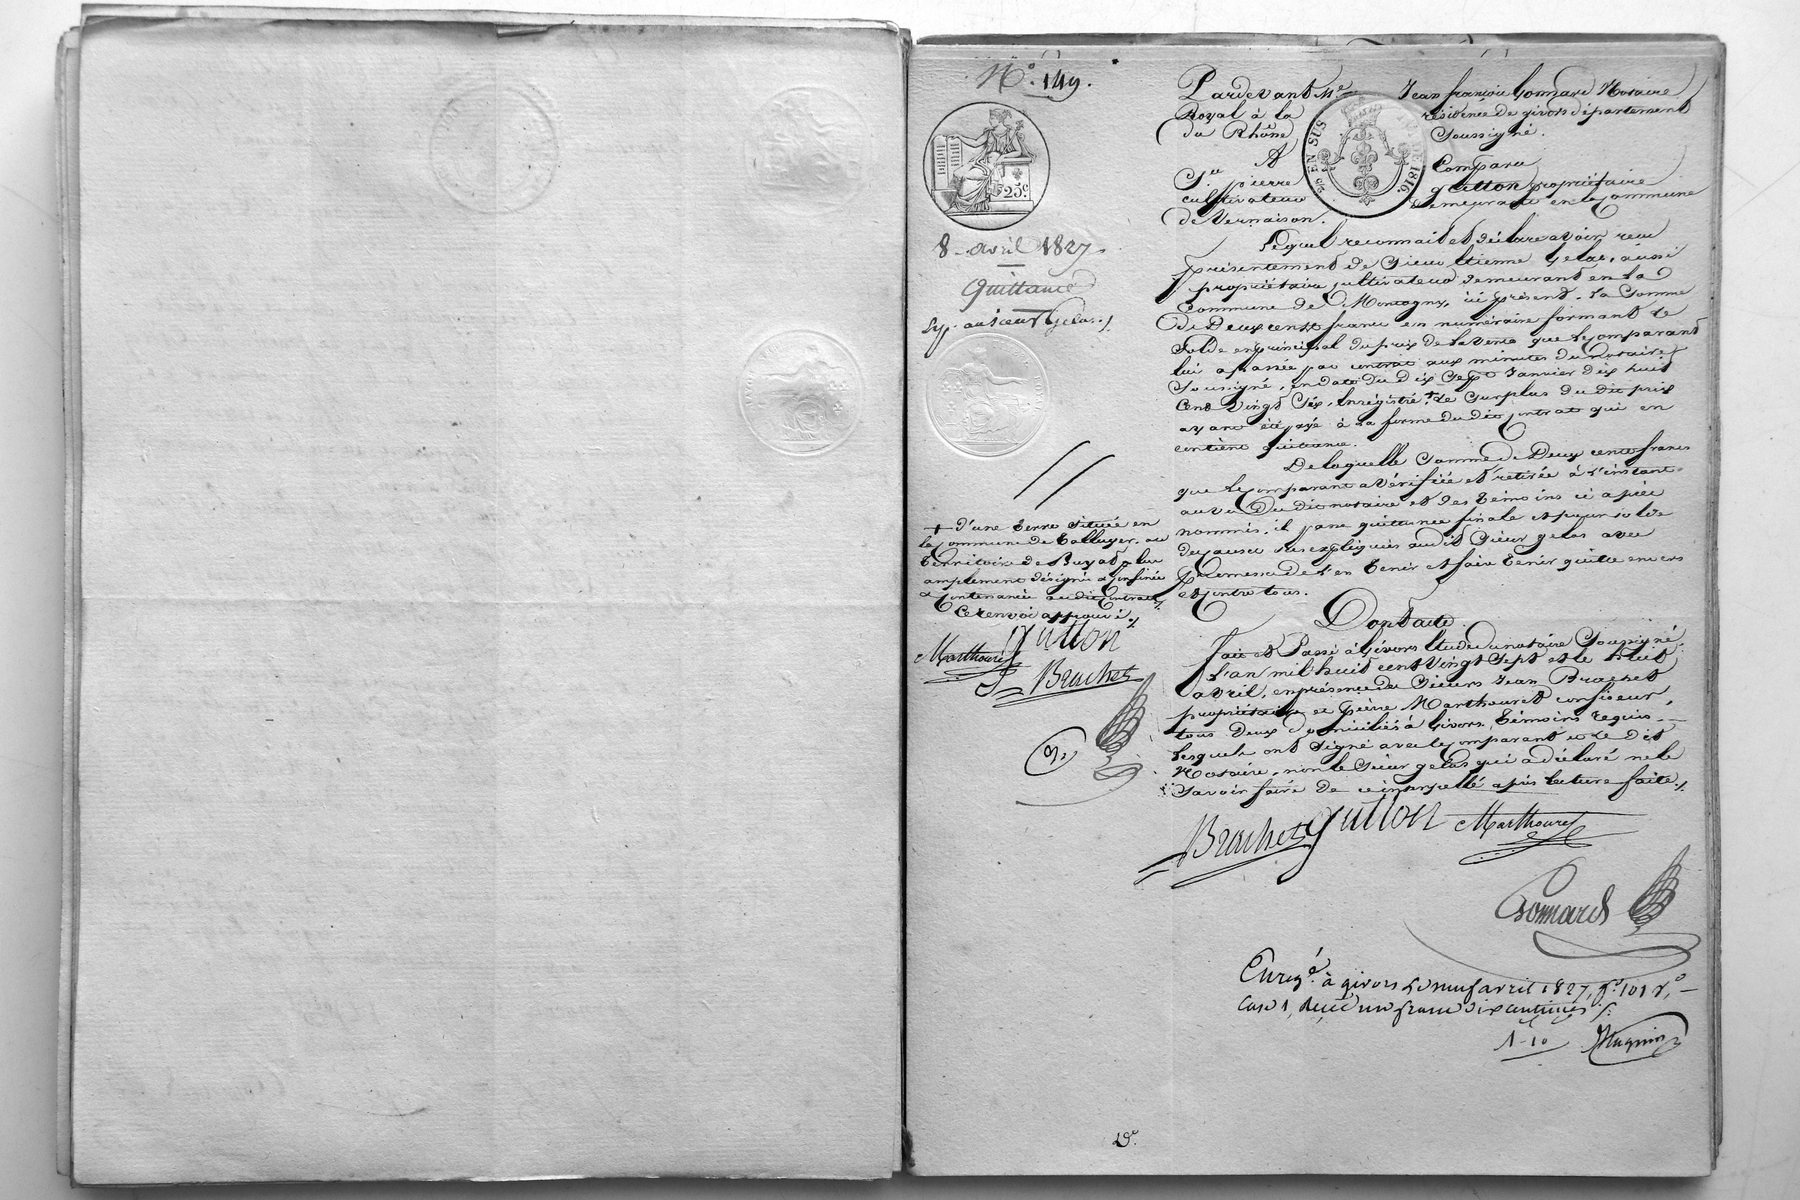 N.º 149.
25.c
8 avril 1827
Quittance
Exp. au sieur Gelas ./.
+ d'une terre située en
la commune de Talluyer, au
territoire de
amplement désignée & confinée
& contenancée au dit contrat,
Ce renvoi approuvé ./.
guillon
Marthouret
Brachet
Pardevant Me Jean françois Gonnard Notaire
Royal à la résidence de givors département
du Rhône Soussigné.
EN SUS 1816.
A Comparu
Sr. pierre guillon propriétaire
cultivateur demeurant en la Commune
de Vernaison.
Lequel reconnait et déclare avoir reçu
présentement de Sieur Etienne Gelas, aussi
propriétaire cultivateur demeurant en la
Commune de Montagny, ici présent, la Somme
de Deux cents francs en numéraire formant le
Solde en principal du prix de la vente que le comparant
lui a passée par contrat aux minutes du Notaire
Soussigné, en date du dix Sept Janvier dix huit
Cent Vingt Six, Enrégistré, + le Surplus du dit prix
ayant été payé à la forme du dit contrat qui en
contient quittance.
De laquelle Somme de Deux cents francs
que le comparant a vérifiée et retirée à l'instant
au vu du dit notaire et des témoins ci après
nommés, il passe quittance finale et pour solde
des causes sus expliquées au dit Sieur gelas avec
promesse de l'en tenir et faire tenir quitte envers
et contre tous.
Dont acte.
fait et Passé à Givors Etude du notaire Soussigné
L'an mil huit cent Vingt Sept et le huit
avril, en présence de Sieurs Jean Brachet
propriétaire et pierre Marthouret confiseur,
tous deux domiciliés à Givors, témoins requis
Lesquels ont signé avec le comparant et le dit
Notaire, non le Sieur gelas qui a déclaré ne le
Savoir faire de ce interpellé après lecture faite ./.
Brachet guillon Marthouret
Gonnard
Enregé. à givors le neuf avril 1827, fo. 101 ro.
Case 1, Reçu un franc dix centimes ./.
1-10 Hugnin